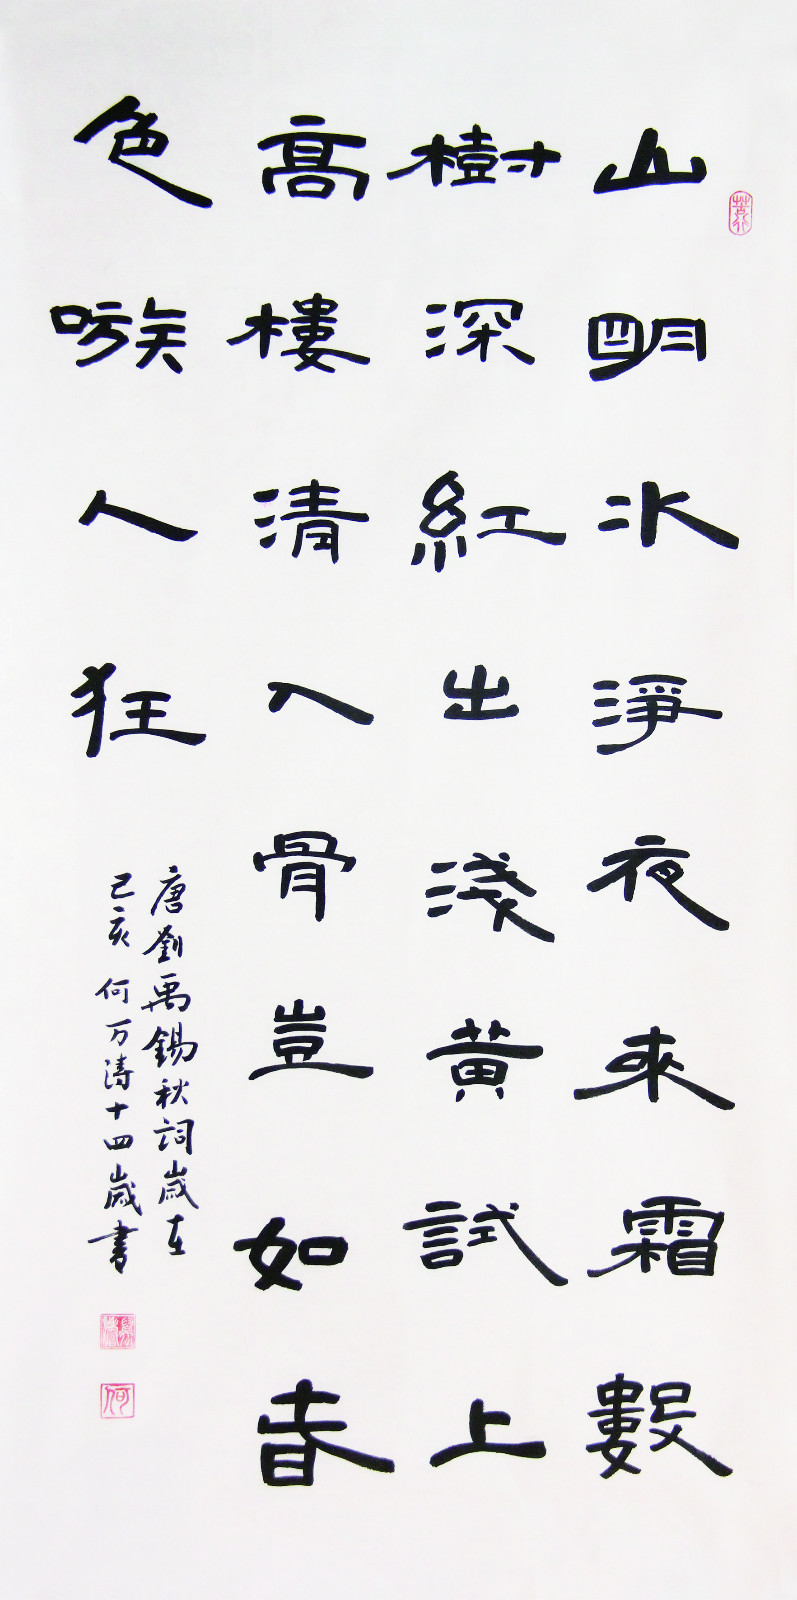 山明水淨夜來霜數
樹深紅出淺黃試上
高樓清入骨豈如春
色嗾人狂
唐劉禹錫秋詞歲在
己亥何万涛十四歲書
何